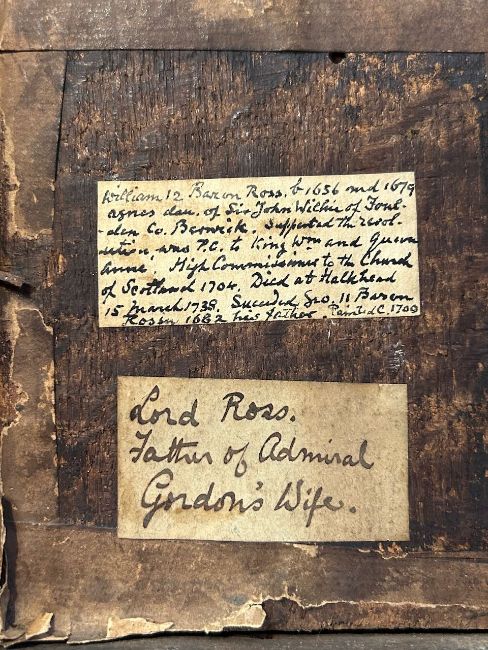 William 12 Baron Ross. b 1656 md 1679
agnes dau. of Sir John Wilkie of Foul-
-den Co. Berwick. Supported the revol-
-ution, was P.C. to King Wm and Queen
Anne. High Commissioner to the Church
of Scotland 1704. Died at Halkhead
15 March 1738. Succeeded Geo. 11 Baron
Ross in 1682 his father. Painted C. 1700
Lord Ross.
Father of Admiral
Gordon's Wife.